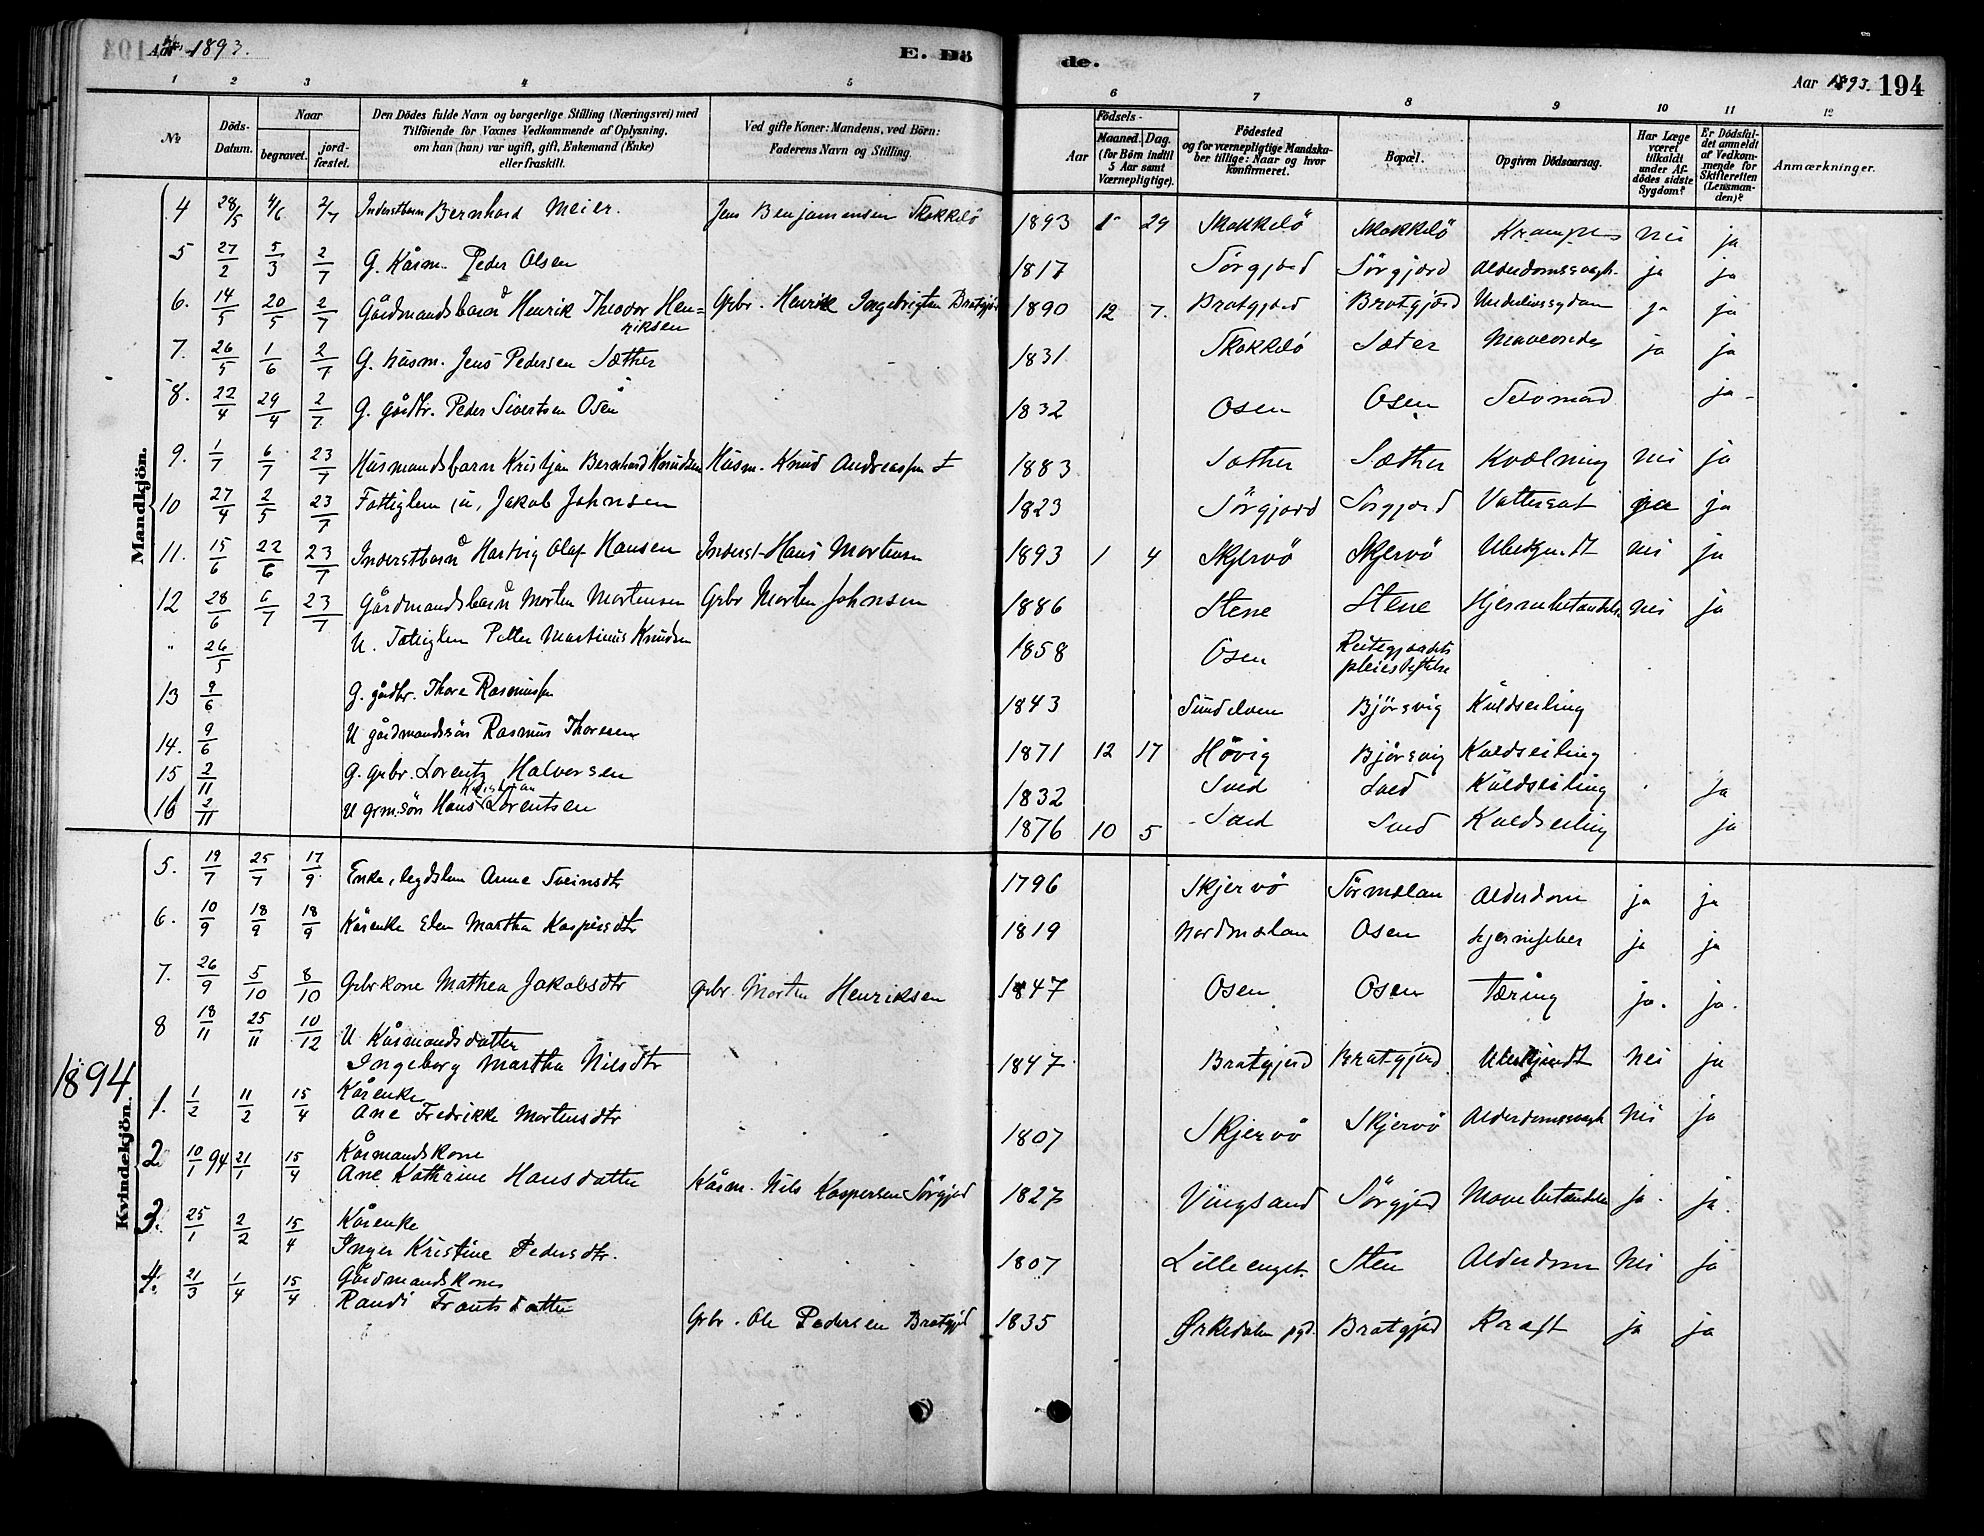 Aar 1893.
E. Dö
de.
Aar 1893. 194
1 2 3 4 5 6 7 8 9 10 11 12
No
Döds-Datum.
Naar
begravet.
jordfæstet.
Den Dödes fulde Navn og borgerlige Stilling (Næringsvei) med
Tilföiende for Voxnes Vedkommende af Oplysning,
om han (hun) var ugift, gift, Enkemand (Enke)
eller fraskilt.
Ved gifte Koner: Mandens, ved Börn:
Faderens Navn og Stilling.
Födsels-
Aar
Maaned. Dag.
(for Börn indtil
5 Aar samt
Værnepligtige).
Födested
og for værnepligtige Mandska-
ber tillige: Naar og hvor
konfirmeret.
Bopæl.
Opgiven Dödsaarsag.
Har Læge
været
tilkaldt
under Af-
dödes sidste
Sygdom?
Er Dödsfal-
det anmeldt
af Vedkom-
mende for
Skifteretten
(Lensman-
den)?
Anmærkninger.
Mandkjön.
4 28/5 4/6 2/7 Inderstbarn Bernhard Meier. Jens Benjaminsen Skokkelö 1893 1 29 Skokkelö Skokkelö Krampe nei ja
5 27/2 5/3 2/7 G. Kårm. Peder Olsen 1817 Sörgjerd Sörgjerd Alderdomssvagh. ja ja
6. 14/5 20/5 2/7 Gårdmandsbarn Henrik Theodor Hen=
riksen Gbr. Henrik Ingebrigtsen Bratgjer 1890 12 7. Bratgjerd Bratgjerd Underlivssygdom ja ja
7. 26/5 1/6 2/7 G. husm. Jens Pedersen Sæther 1831 Skokkelö Sæter ja ja
8. 22/4 29/4 2/7 G. gårdbr. Peder Sivertsen Osen 1832 Osen Osen Selvmord ja
9. 1/7 6/7 23/7 Husmandsbarn Kristjan Bernhard Knudsen Husm. Knud Andreassen 1883 Sæther Sæther Kvælning nei ja
10 27/4 2/5 23/7 Fattiglem, u, Jakob Johnsen 1823 Sörgjerd Sörgjerd Vattersot ja
11. 15/6 22/6 23/7 Inderstbarn Hartvig Olaf Hansen Inderst Hans Mortensen 1893 1 4 Skjervö Skjervö Ubekjendt nei ja
12 28/6 6/7 23/7 Gårdmandsbarn Morten Mortensen Gbr Morten Johnsen 1886 Stene Stene Hjernebetændelse nei ja
" 26/5 U. Fattiglem Petter Martinus Knudsen 1858 Osen Reitgjærdets
pleiestiftelse
13 9/6 G. gårdbr. Thore Rasmussen 1843 Sundelven Bjørsvig Kuldseiling
14. 9/6 U gårdmandssön Rasmus Thoresen 1871 12 17 Hövig Bjørsvig Kuldseiling
15 2/11 G. gbr. Lorentz Halvorsen 1832 Sved Sved Kuldseiling ja
16 2/11 U grm.sön Hans Kristian Lorentsen 1876 10 5 Sved Sved Kuldseiling ja
Kvindekjön.
5. 19/7 25/7 17/9 Enke, legdslem Anne Sveinsdtr 1796 Skjervö Sörmelan Alderdom ja ja
6. 10/9 18/9 18/9 Kårenke Elen Martha Kaspersdtr 1819 Nordmelan Osen ja ja
7. 26/9 5/10 8/10 Gbrkone Mathea Jakobsdtr Gbr. Morten Henriksen 1847 Osen Osen Tæring ja. ja.
8 18/11 25/11 10/12 U Kårmandsdatter
Ingeborg Martha Nilsdtr 1847 Bratgjerd Bratgjerd Ubekjendt nei ja
1894
1. 1/2 11/2 15/4 Kårenke
Ane Fredrikke Mortensdtr 1807 Skjervö Skjervö Alderdomssvagh nei ja
2. 10/1 94 21/1 15/4 Kårmandskone
Ane Kathrine Hansdatter Kårm. Nils Kaspersen Sörgjerd 1827 Vingsand Sörgjerd Mavebetændelse ja. ja.
3. 25/1 2/2 15/4 Kårenke
Inger Kristine Pedersdtr. 1807 Lilleenget Sten Alderdom nei ja
4. 21/3 1/4 15/4 Gårdmandskone
Randi Frantsdatter Gbr. Ole Pedersen Bratgjd 1835 Ørkedalen pgd. Bratgjerd Kræft ja ja